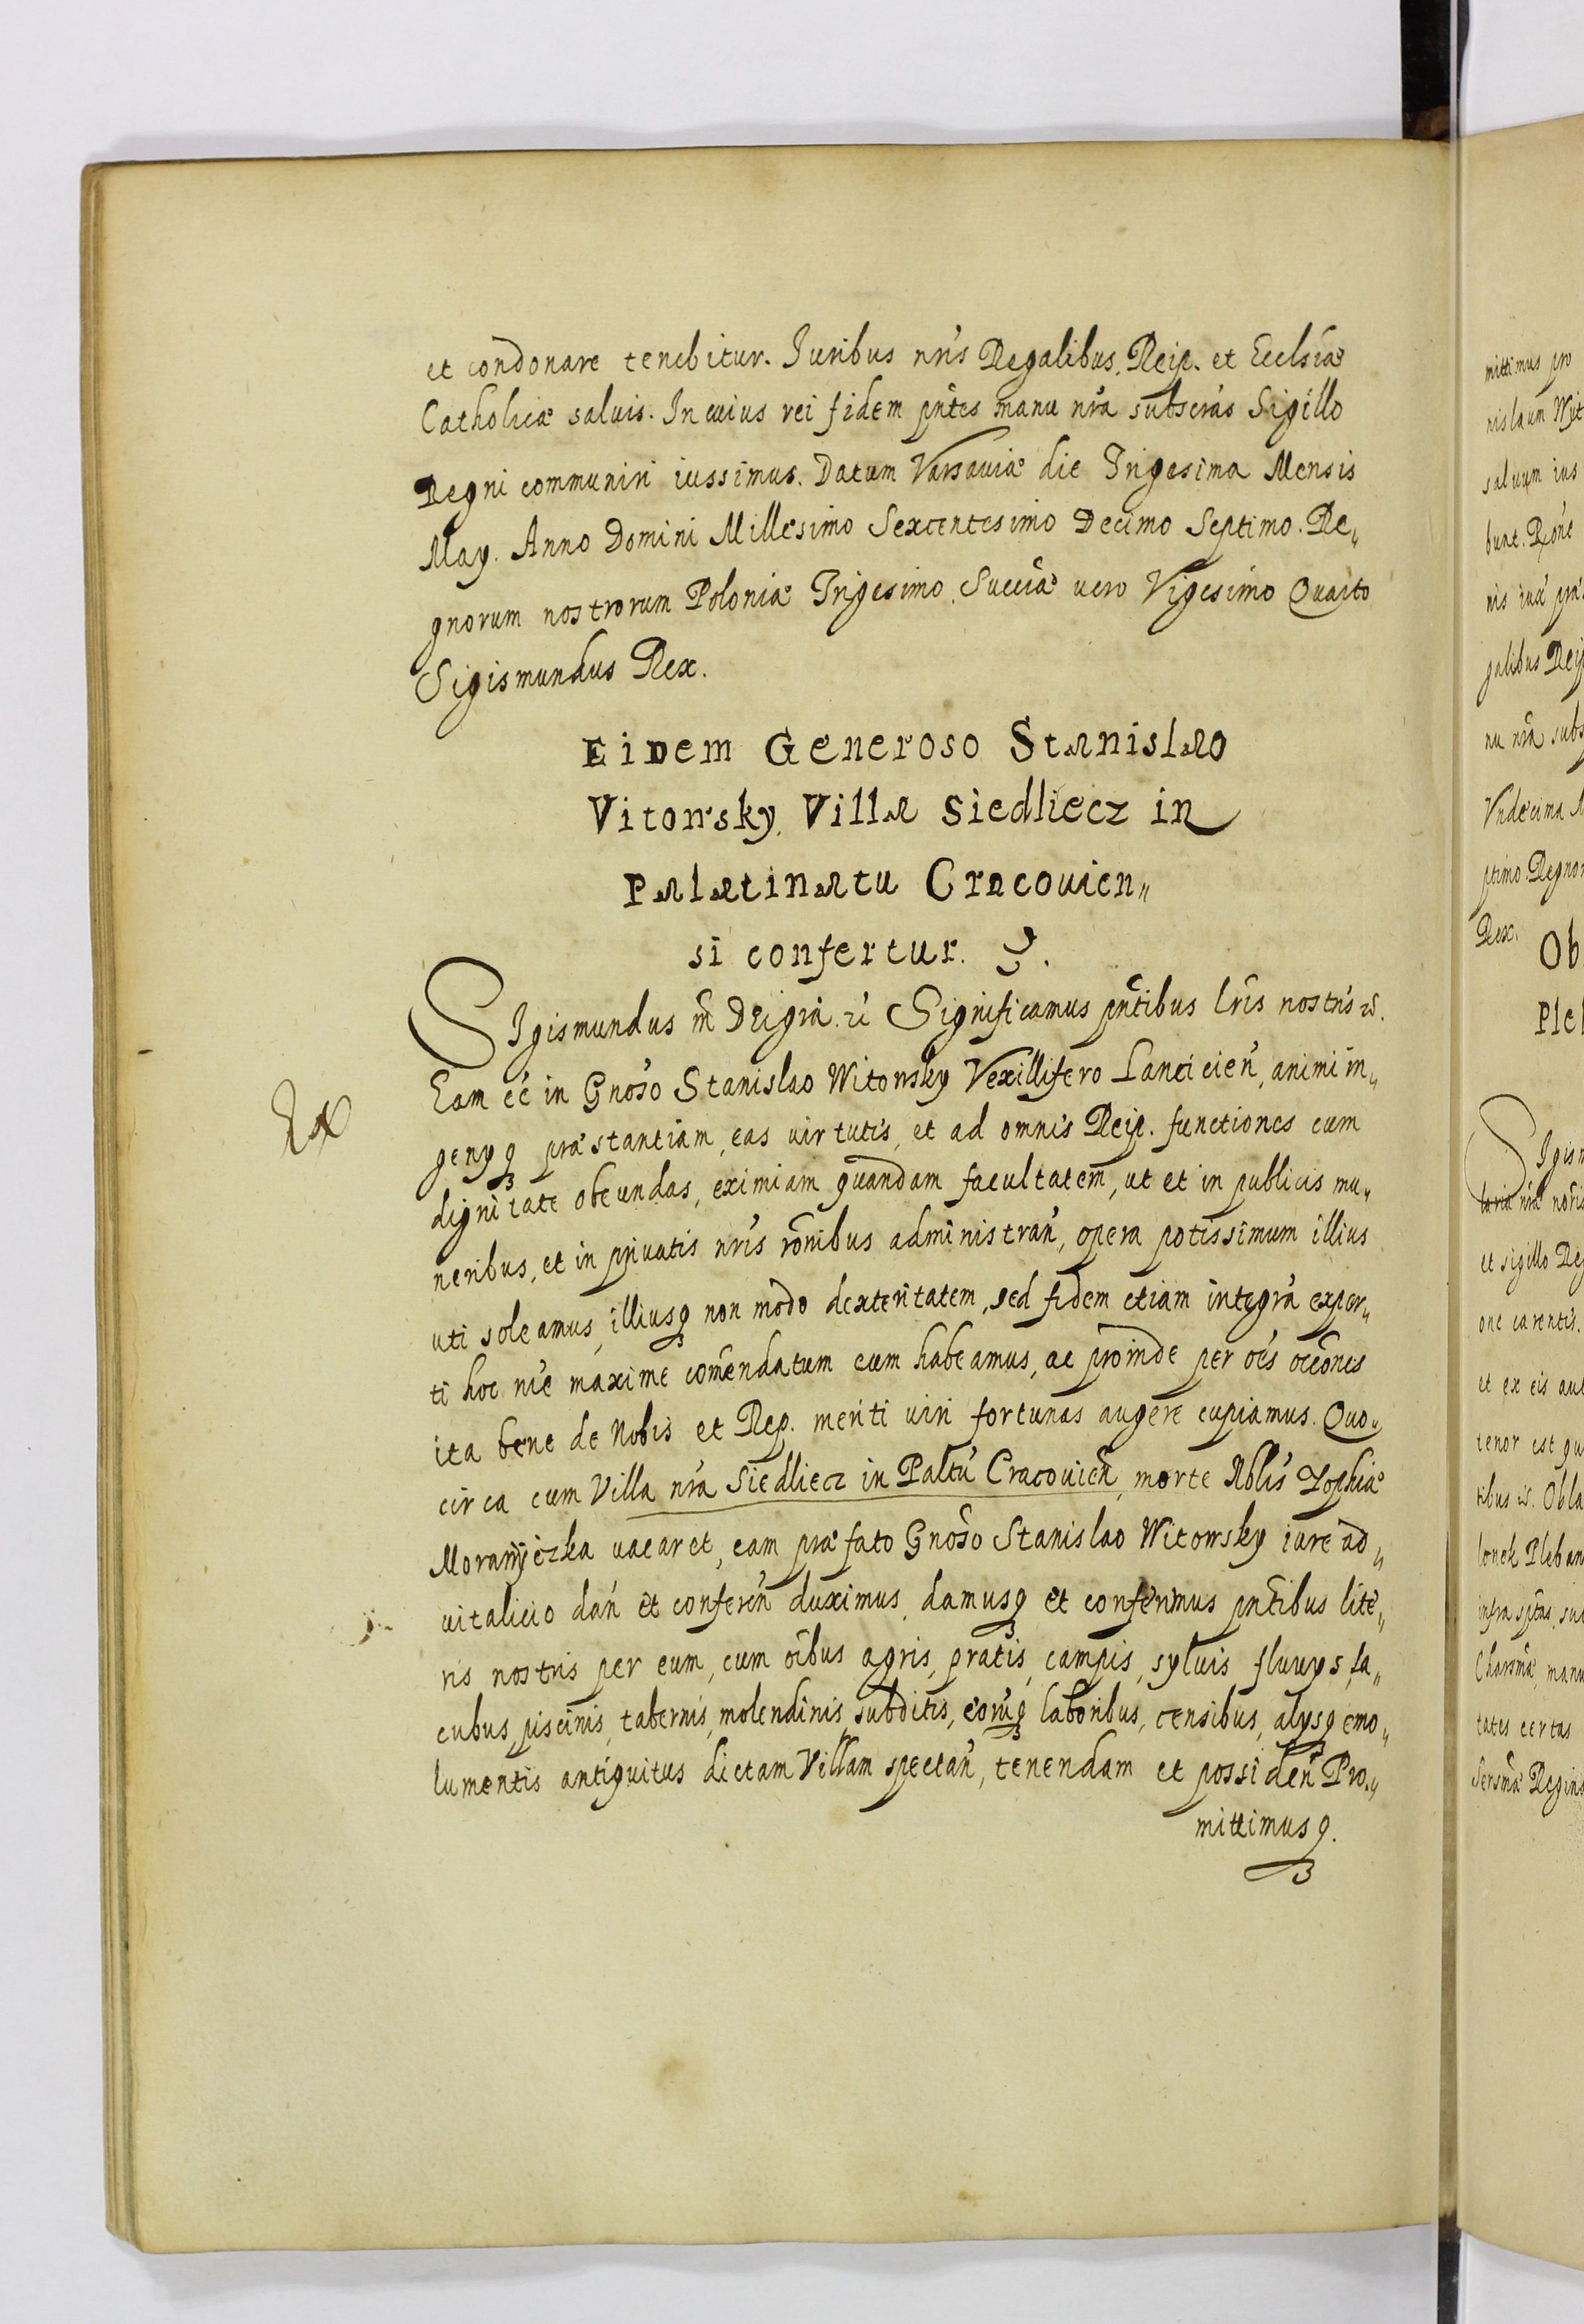 et condonare tenebitur. Juribus nr̃is Regalibus, Reip. et Ecclsiæ
Catholicæ saluis. In cuius rei fidem pñtes manu nr̃a subscr̃as Sigillo
Regni communiri iussimus. Datum Varsauiæ die Trigesima Mensis
May. Anno Domini Millesimo Sexcentesimo Decimo Septimo. Re„
gnorum nostrorum Poloniæ Trigesimo, Sueciæ uero Vigesimo Quarto
Sigismundus Rex.
Eidem Generoso Stanislao
Vitowsky, Villa Siedliecz in
Palatinatu Cracouien„
si confertur.
SIgismundus 3̃ Dei grã. Significamus pñtibus lr̃is nostris
Eam eẽ in Gnoso Stanislao Witowsky Vexillifero Lancicien̄, animi in„
genyq præstantiam, eas uirtutis, et ad omnis Reip. functiones cum
dignitate obeundas, eximiam quandam facultatem, ut et in publicis mu„
neribus, et in priuatis nr̃is rõnibus administran̄, opera potissimum illius
uti soleamus, illiusq non modo dexteritatem, sed fidem etiam integrã exper„
ti hoc nr̃e maxime com̃endatum eum habeamus, ac proinde per oẽs occõnes
ita bene de Nobis et Rep. meriti uiri fortunas augere cupiamus. Quo„
circa cum Villa nr̃a Siedliecz in Paltũ Cracouien̄, morte Nblis Zophiæ
Morawyczka uacaret, eam præfato Gnoso Stanislao Witowsky iure ad„
uitalicio dan̄ et conferen̄ duximus, damusq et conferimus pñtibus lite„
ris nostris per eum, cum oĩbus agris, pratis, campis, syluis, fluuys, la„
cubus, piscinis, tabernis, molendinis, subditis, eorũq laboribus, censibus, alysq emo„
lumentis antiquitus dictam Villam spectan̄, tenendam et possiden̄ Pro„
mittimusq.
mittimus pro
nislaum Wit
saluum ius
bunt. Rõne
nis
galibus Reip
nu nr̃a subs
Vndecima M
ptimo Regnor
Rex.
Ob
Ple
SIgism
nr̃æ
et sigillo Reg
one carentis.
et ex eis aut
tenor est qu
tibus Obla
lonek Pleban
infra sptas
manu
tates certas
Regin